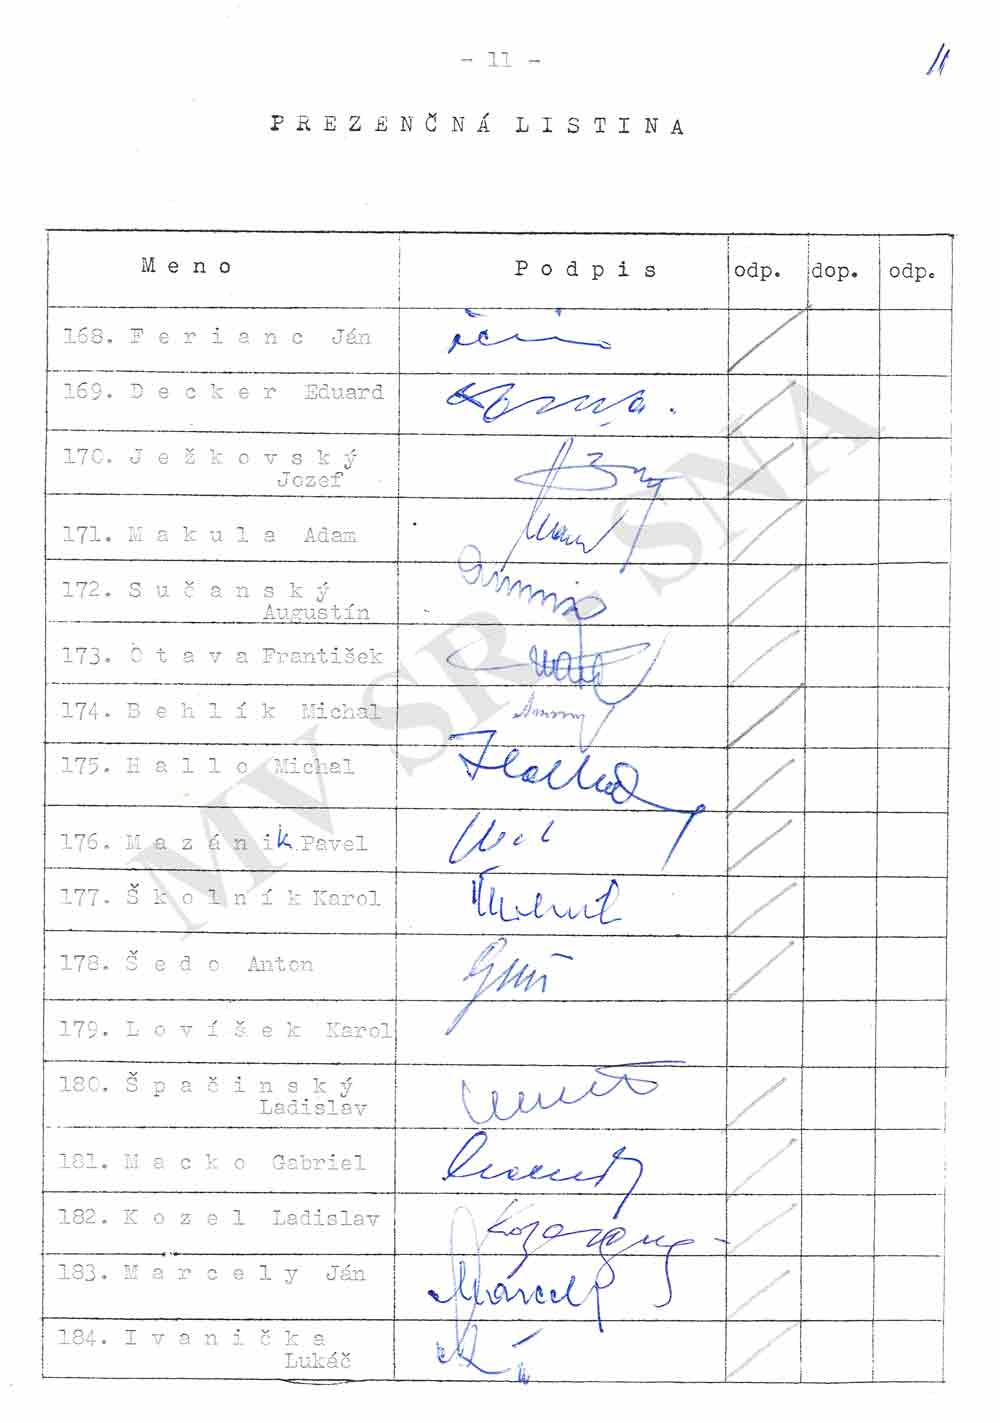 - 11 -
11
PREZENČNÁ LISTINA
Meno Podpis odp. dop. odp.
168. Ferianc Ján
169. Decker Eduard
170. Ježkovský
Jozef
171. Makula Adam
172. Sučanský
Augustín
173. Otava František
174. Behlík Michal
175. Hallo Michal
176. Mazánik Pavel
177. Školník Karol
178. Šedo Anton
179. Lovíšek Karol
180. Špačinský
Ladislav
181. Macko Gabriel
182. Kozel Ladislav
183. Marcely Ján
184. Ivanička
Lukáč
MV SR - SNA